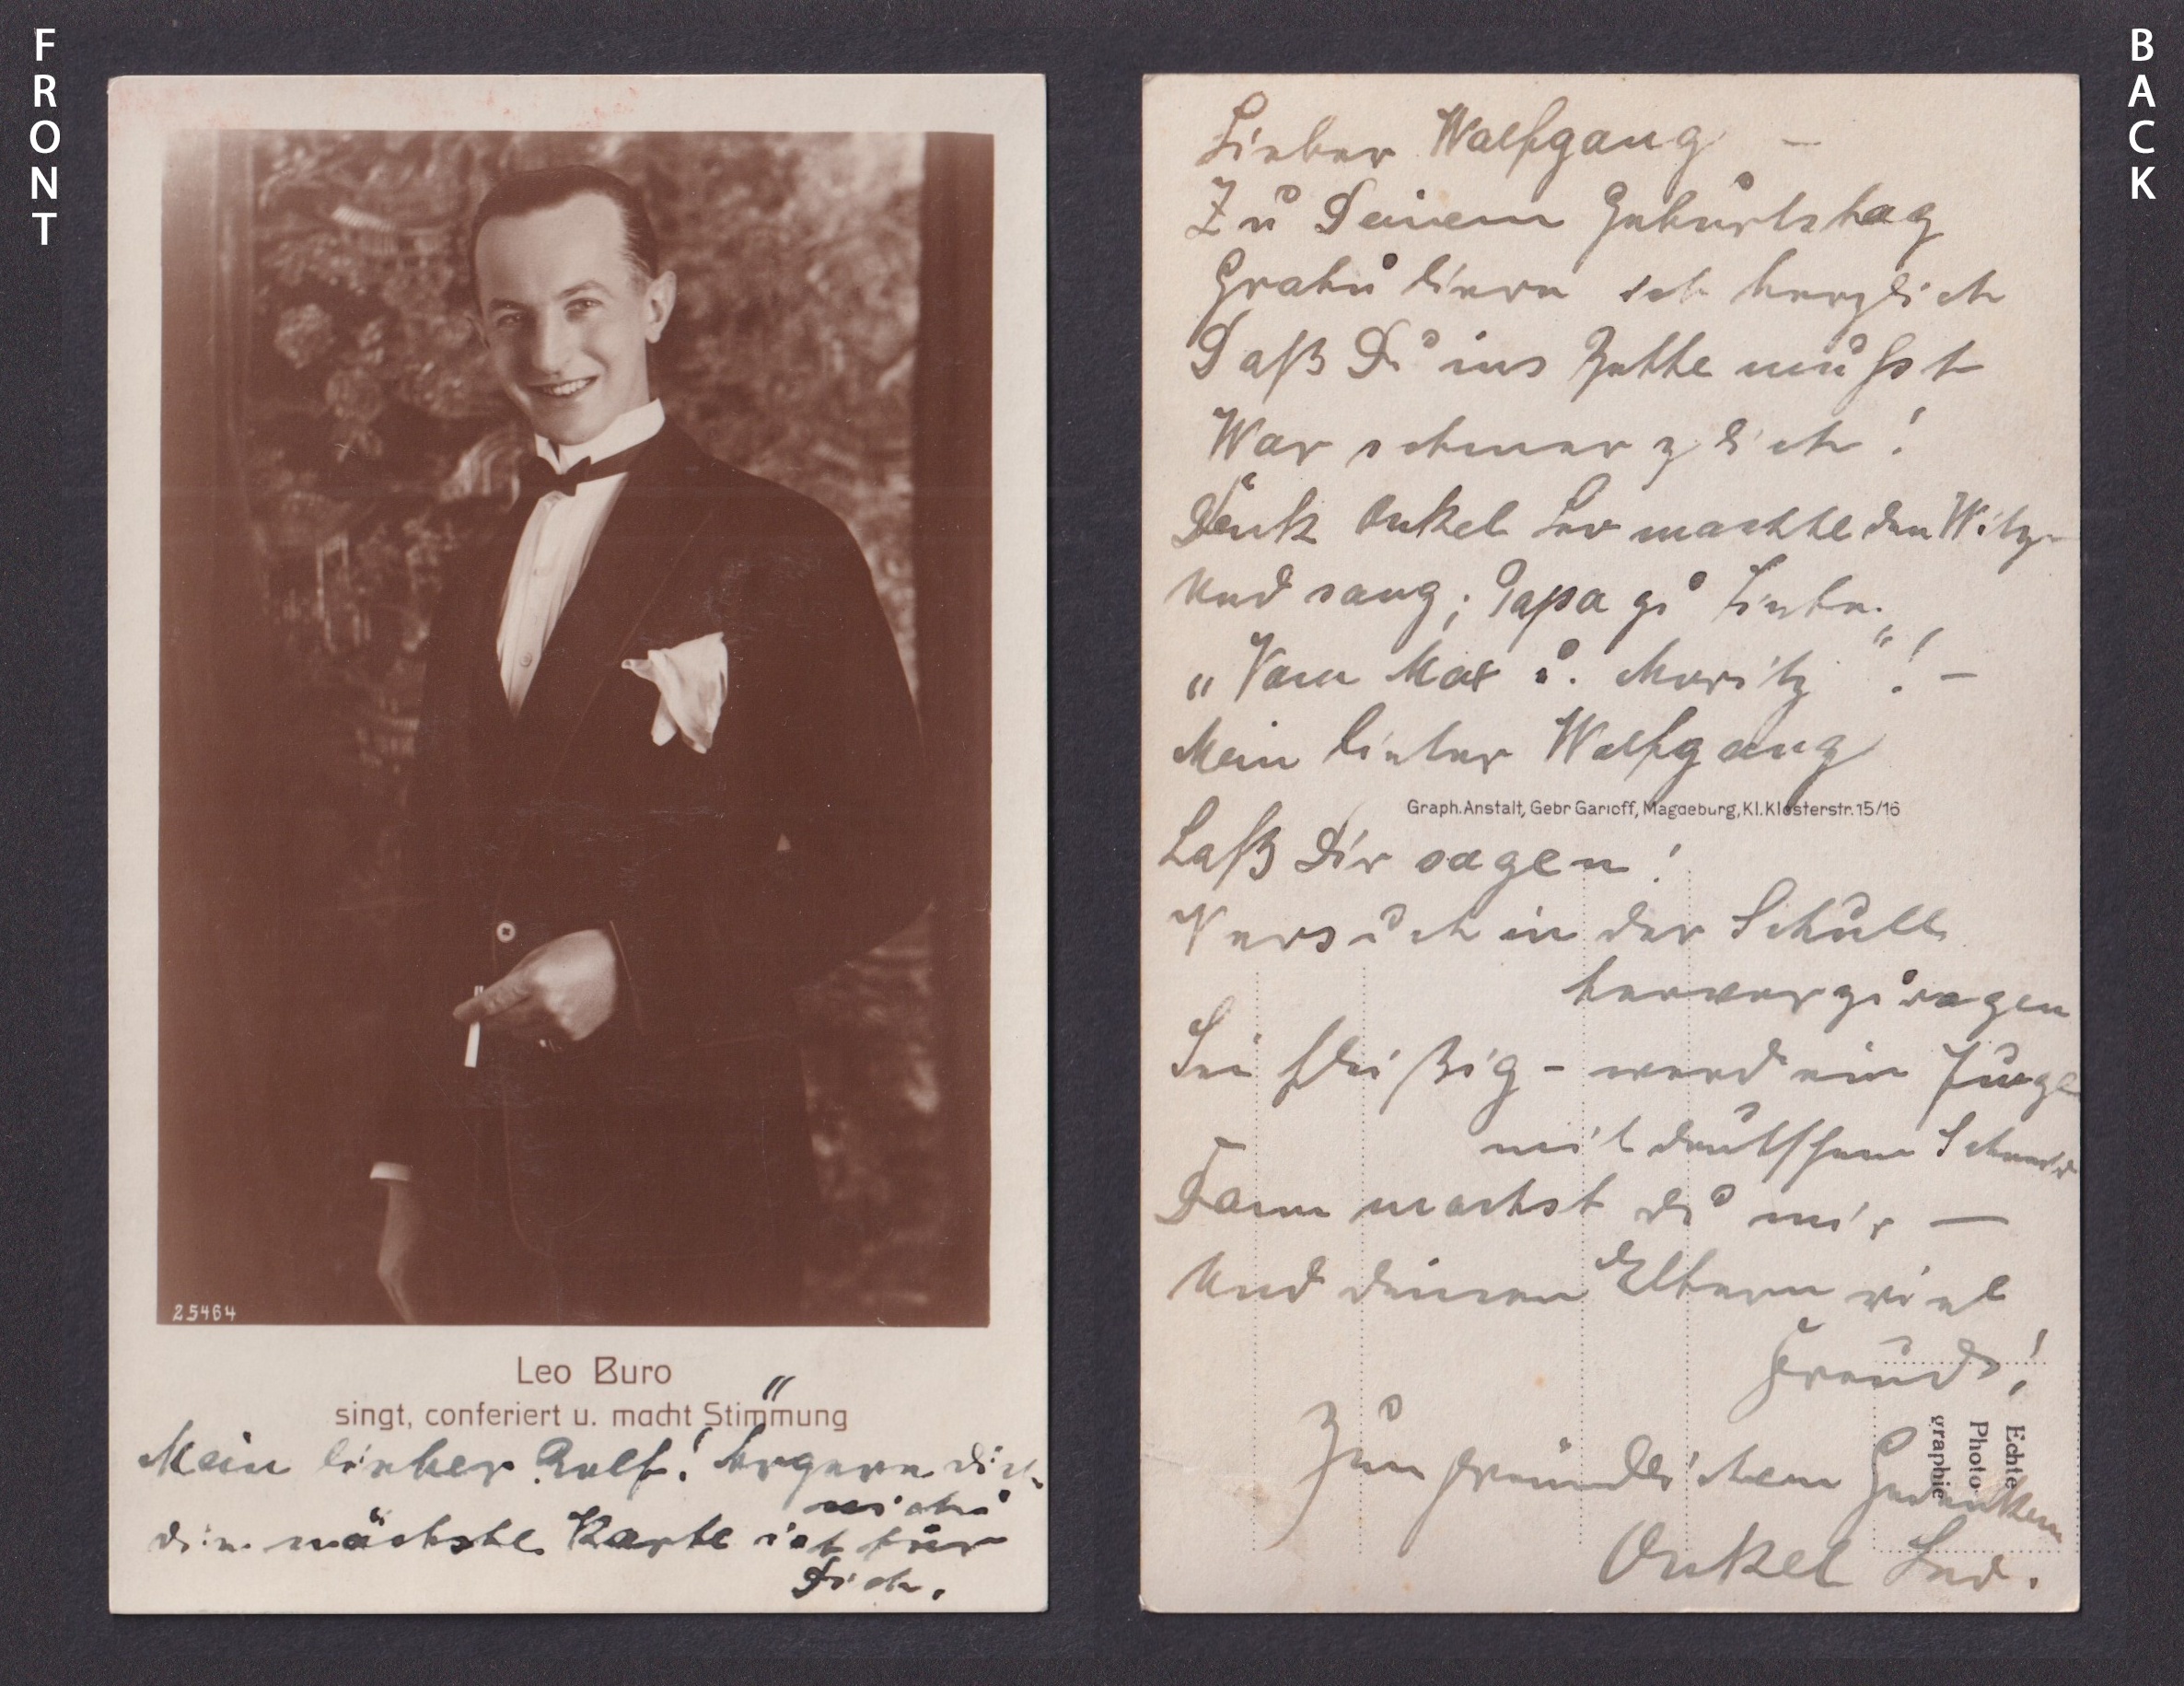 FRONT
25464
Leo Buro
singt, conferiert u. macht Stimmung
Mein lieber Rolf! Aergere dich
nicht
die nächste Karte ist für
Dich.
BACK
Lieber Wolfgang –
Zu Deinem Geburtstag
Gratuliere ich herzlich
Daß Du ins Bette mußst
War schmerzlich!
Denk Onkel Leo machte den Witz
Und sang; Papa zu Liebe.
"Vom Max u. Moritz"! –
Mein lieber Wolfgang
Graph. Anstalt, Gebr Garloff, Magdeburg, Kl. Klosterstr. 15/16
Laß Dir sagen!
Versuch in der Schule
hervorzuragen
Sei fleißig – werd ein Junge
mit deutschem Schneid
Dann machst du mir —
Und deinen Eltern viel
Freud!
Echte
Photo
graphie
Zum freundlichen Gedenken
Onkel Leo.